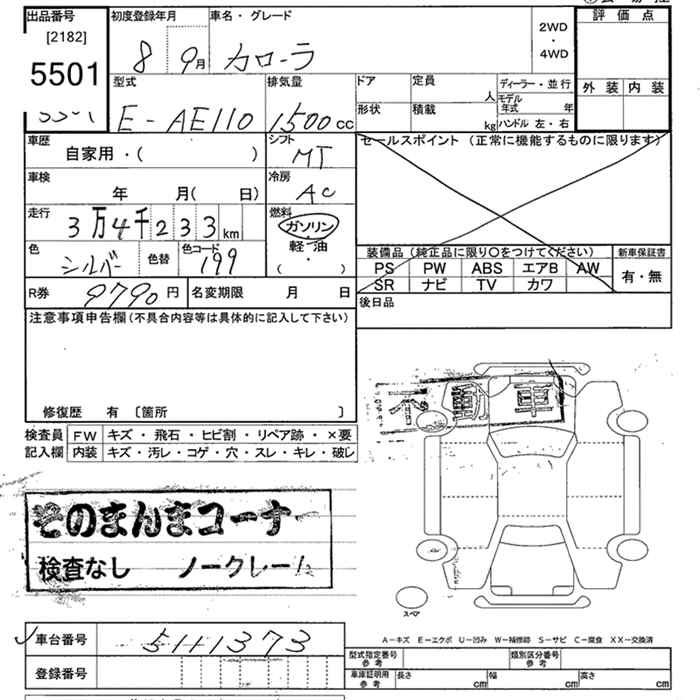 出品番号
[2182]
5501
初度登録年月
8 9月
車名・グレード
カローラ
2WD
・
4WD
評価点
外装 内装
型式
E-AE110
排気量
1500cc
ドア
形状
定員 人
積載 kg
ディーラー・並行
モデル年式 年
ハンドル 左・右
車歴
自家用・( )
シフト
MT
セールスポイント (正常に機能するものに限ります)
車検
年 月( 日)
冷房
AC
走行
3万4千233km
燃料
ガソリン
・
軽油
( )
色
シルバー
色替
色コード
199
装備品 (純正品に限り○をつけてください)
PS PW ABS エアB AW
SR ナビ TV カワ
新車保証書
有・無
R券 9790円
名変期限 月 日
後日品
注意事項申告欄(不具合内容等は具体的に記入して下さい)
修復歴 有 〔箇所 〕
検査員記入欄
FW キズ・飛石・ヒビ割・リペア跡・×要
内装 キズ・汚レ・コゲ・穴・スレ・キレ・破レ
そのまんまコーナー
検査なし ノークレーム
スペア
A-キズ E-エクボ U-凹み W-補修跡 S-サビ C-腐食 XX-交換済
車台番号 5111373
登録番号
型式指定番号 参考
類別区分番号 参考
車庫証明用 参考
長さ cm 幅 cm 高さ cm